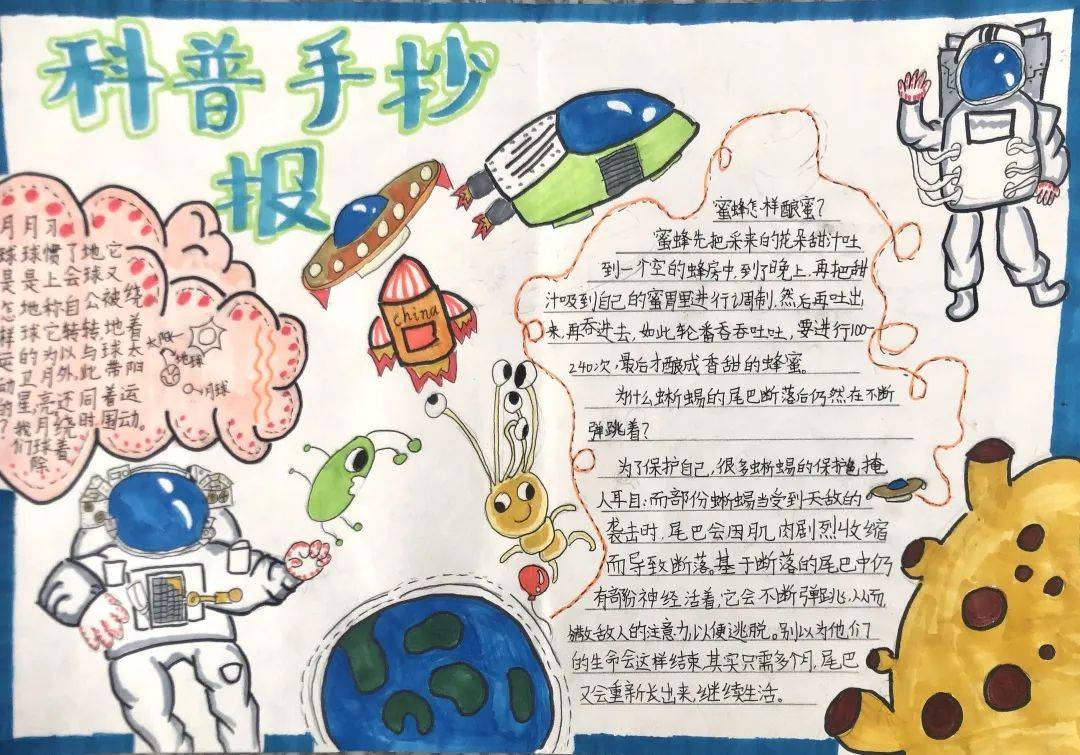 科普手抄
报
月球是怎样运动的?
月球是地球的卫星,我们
习惯上称它为月亮,月球除
了会自转以外,还绕着
地球公转,与此同时
它又被地球带着围
绕着太阳运动。
太阳
地球
月球
china
蜜蜂怎样酿蜜?
蜜蜂先把采来的花朵甜汁吐
到一个空的蜂房中,到了晚上,再把甜
汁吸到自己的蜜胃里进行调制,然后再吐出
来,再吞进去,如此轮番吞吞吐吐,要进行100-
240次,最后才酿成香甜的蜂蜜。
为什么蜥蜴的尾巴断落后仍然在不断
弹跳着?
为了保护自己,很多蜥蜴的保护色,掩
人耳目;而部份蜥蜴当受到天敌的
袭击时,尾巴会因肌肉剧烈收缩
而导致断落。基于断落的尾巴中仍
有部份神经活着,它会不断弹跳,从而
撒敌人的注意力,以便逃脱。别以为他们
的生命会这样结束,其实只需多个月,尾巴
又会重新长出来,继续生活。